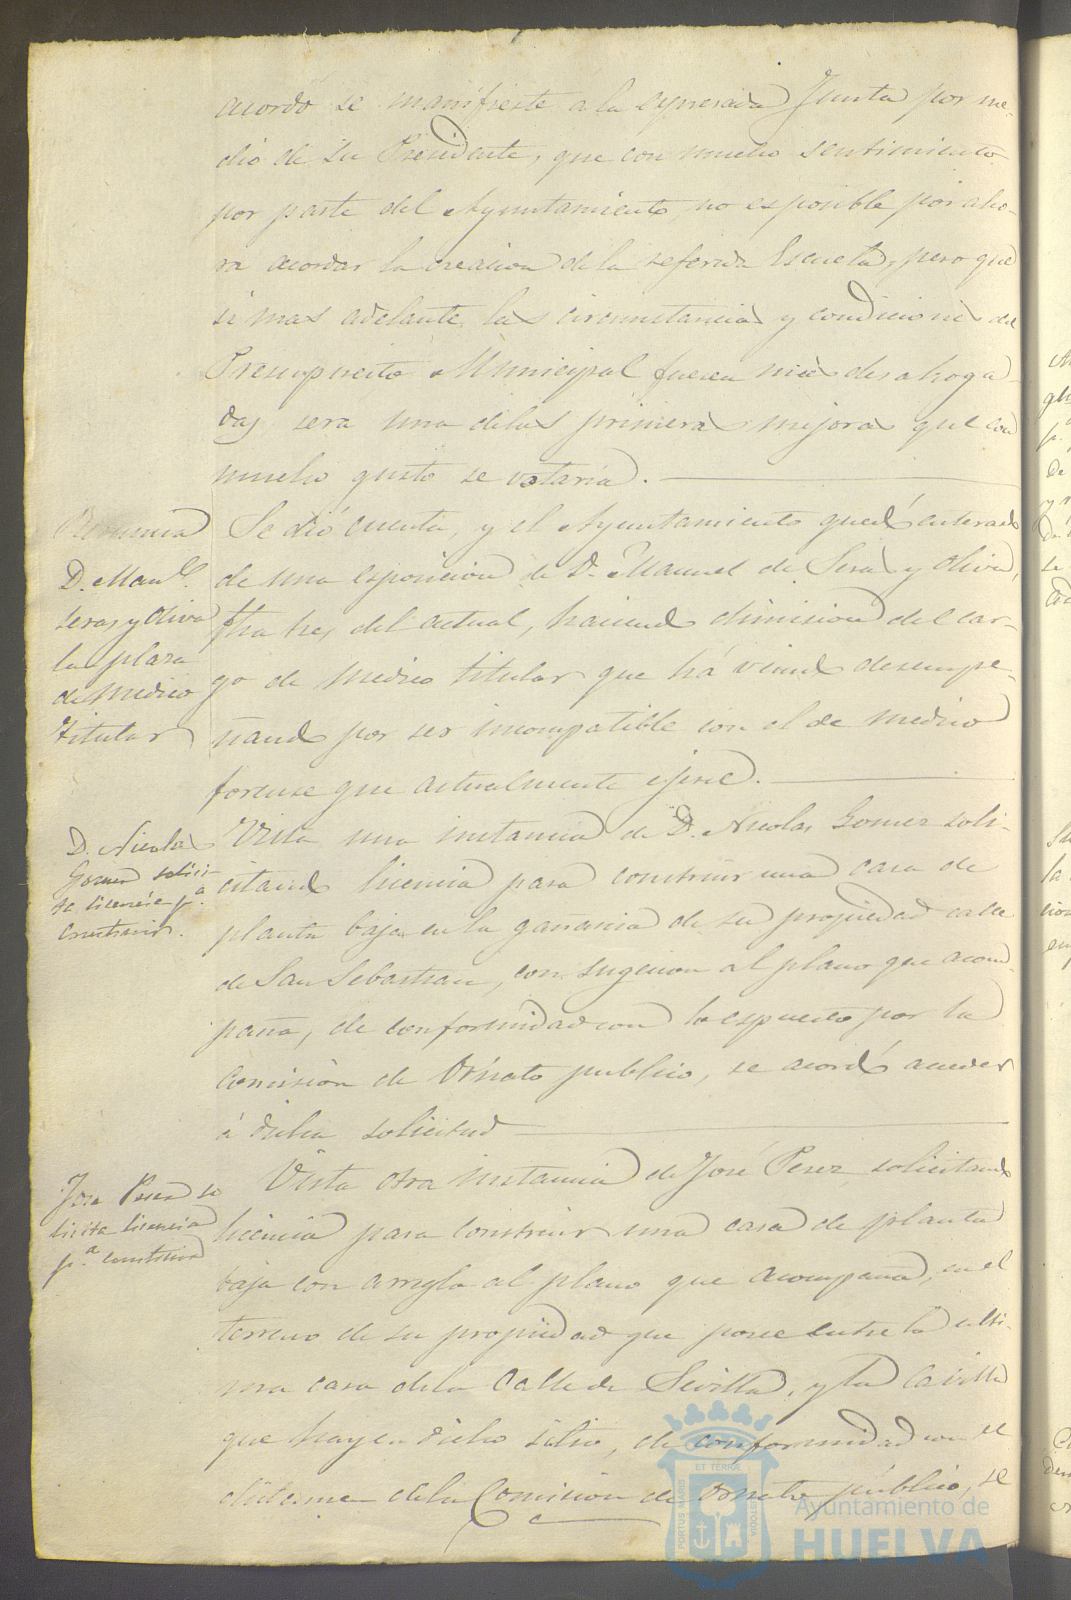 acordó se manifieste a la espresada Junta por me-
dio de su Presidente, que con mucho sentimiento
por parte del Ayuntamiento, no es posible por aho-
ra acordar la creacion de la referida Escuela, pero que
si mas adelante las circunstancias y condiciones del
Presupuesto Municipal fueren mas desahoga-
das sera una de las primeras mejoras que con
mucho gusto se votaría.
Renuncia
D. Man.l
Seras y Oliva
la plaza
de Medico
titular
Se dió cuenta, y el Ayuntamiento quedó enterado
de una esposicion de D. Manuel de Seras y Oliva,
fha tres del actual, haciendo dimision del car-
go de Medico titular que há venido desempe-
ñando por ser incompatible con el de medico
forense que actualmente ejerce.
D. Nicolas
Gomez solici-
ta licencia p.a
construir.
Vista una instancia de D. Nicolas Gomez soli-
citando licencia para construir una casa de
planta baja en la de su propiedad calle
de San Sebastian, con sugecion al plano que acom-
paña, de conformidad con lo espuesto por la
Comision de Ornato publico, se acordó acceder
á dicha solicitud
Jose Perez so
licita licencia
p.a construir
Vista otra instancia de José Perez solicitando
licencia para construir una casa de planta
baja con arreglo al plano que acompaña, en el
terreno de su propiedad que posee entre la ulti-
ma casa de la Calle de Sevilla, y la
que hay en dicho sitio, de conformidad con el
dictamen de la Comision de Ornato público, se
PORTUS MARIS
ET TERRAE
CUSTODIA
Ayuntamiento de
HUELVA